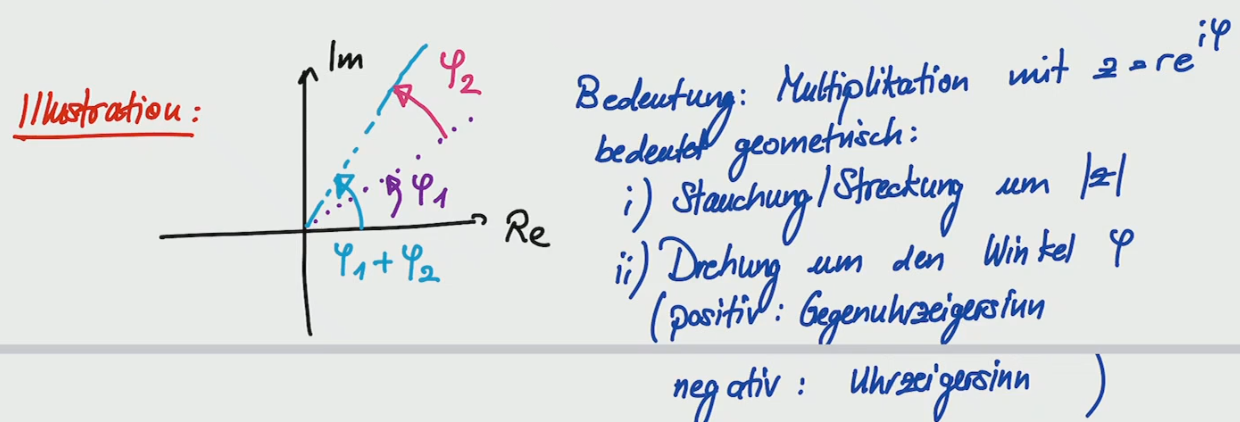 Illustration:
Im
φ₂
φ₁
Re
φ₁ + φ₂
Bedeutung: Multiplikation mit z = re^{iφ}
bedeutet geometrisch:
i) Stauchung/Streckung um |z|
ii) Drehung um den Winkel φ
(positiv: Gegenuhrzeigersinn
negativ: Uhrzeigersinn )